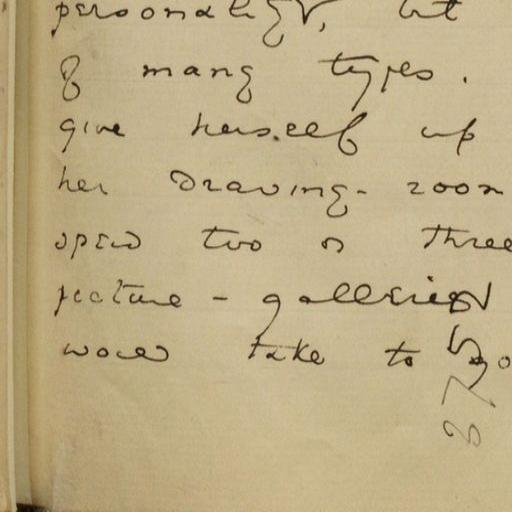 personality, but
of many types.
give herself up
her drawing-room
spend two or three
picture-galleries
would take to go
375